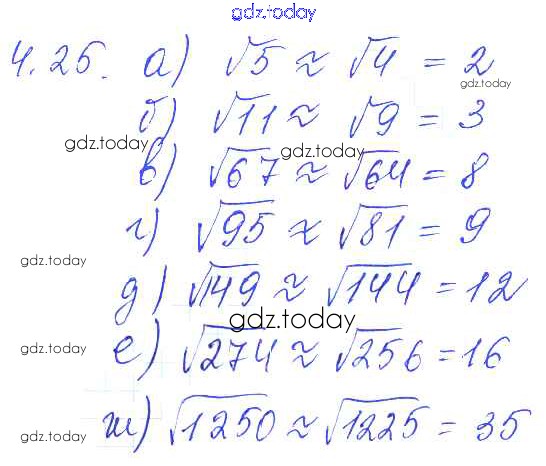 gdz.today
4.25. а) √5 ≈ √4 = 2
gdz.today
б) √11 ≈ √9 = 3
gdz.today
gdz.today
в) √67 ≈ √64 = 8
г) √95 ≈ √81 = 9
gdz.today
gdz.today
д) √149 ≈ √144 = 12
gdz.today
е) √274 ≈ √256 = 16
gdz.today
ж) √1250 ≈ √1225 = 35
gdz.today